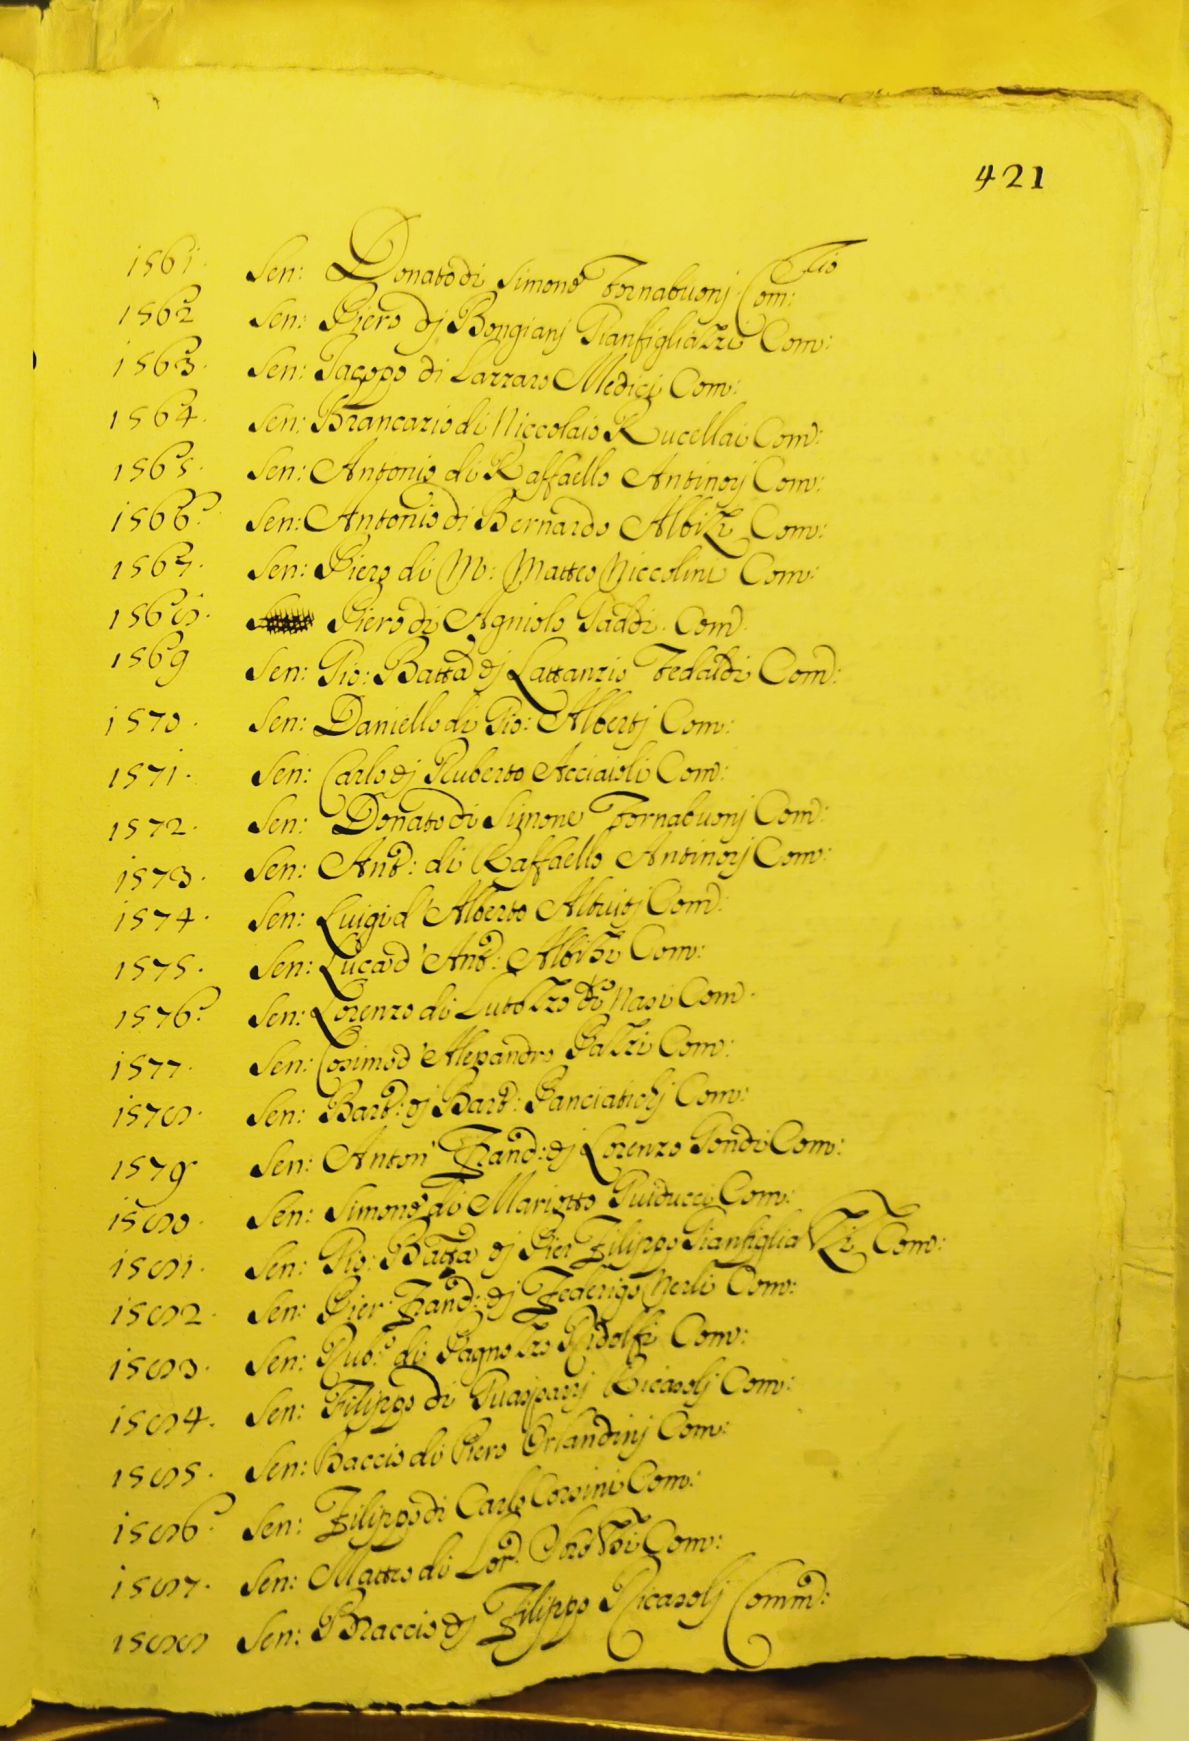 421
1561. Sen: Donato di Simone Tornabuonj. Com:rio
1562 Sen: Piero dj Bongianj Gianfigliazzi Com:
1563. Sen: Jacopo di Lazzaro Medici Com:
1564. Sen: Brancazio di Niccolaio Rucellai Com:
1565. Sen: Antonio di Raffaello Antinorj Com:
1566. Sen: Antonio di Bernardo Albizi Com:
1567. Sen: Piero di M: Matteo Niccolini Com:
1568. Piero di Agniolo Gaddi. Com.
1569 Sen: Gio: Batta dj Lattanzio Tedaldi Com:
1570. Sen: Daniello di Gio: Albertj Com:
1571. Sen: Carlo dj Ruberto Acciaioli Com:
1572. Sen: Donato di Simone Tornabuonj Com:
1573. Sen: Anto: di Raffaello Antinorj Com:
1574. Sen: Luigi d'Alberto Altovitj Com:
1575. Sen: Luca d'Anto: Albizzi Com:
1576. Sen: Lorenzo di Lutozzo Nasi Com.
1577. Sen: Cosimo d'Alexandro Pazzi Com:
1578. Sen: Barto: dj Barto: Panciatichj Com:
1579 Sen: Anton Franco: dj Lorenzo Gondi Com:
1580. Sen: Simone di Mariotto Guiducci Com:
1581. Sen: Gio: Batta dj Pier Filippo Gianfigliazzi Com:
1582. Sen: Pier: Franco: dj Federigo Nerli Com:
1583. Sen: Rubo: di Pagnozzo Ridolfi Com:
1584. Sen: Filippo di Guasparrj Ricasolj Com:
1585. Sen: Baccio di Piero Orlandinj Com:
1586. Sen: Filippo di Carlo Corsini Com:
1587. Sen: Matteo di Lor. Strozzi Com:
1588 Sen: Braccio dj Filippo Ricasolj Comm: